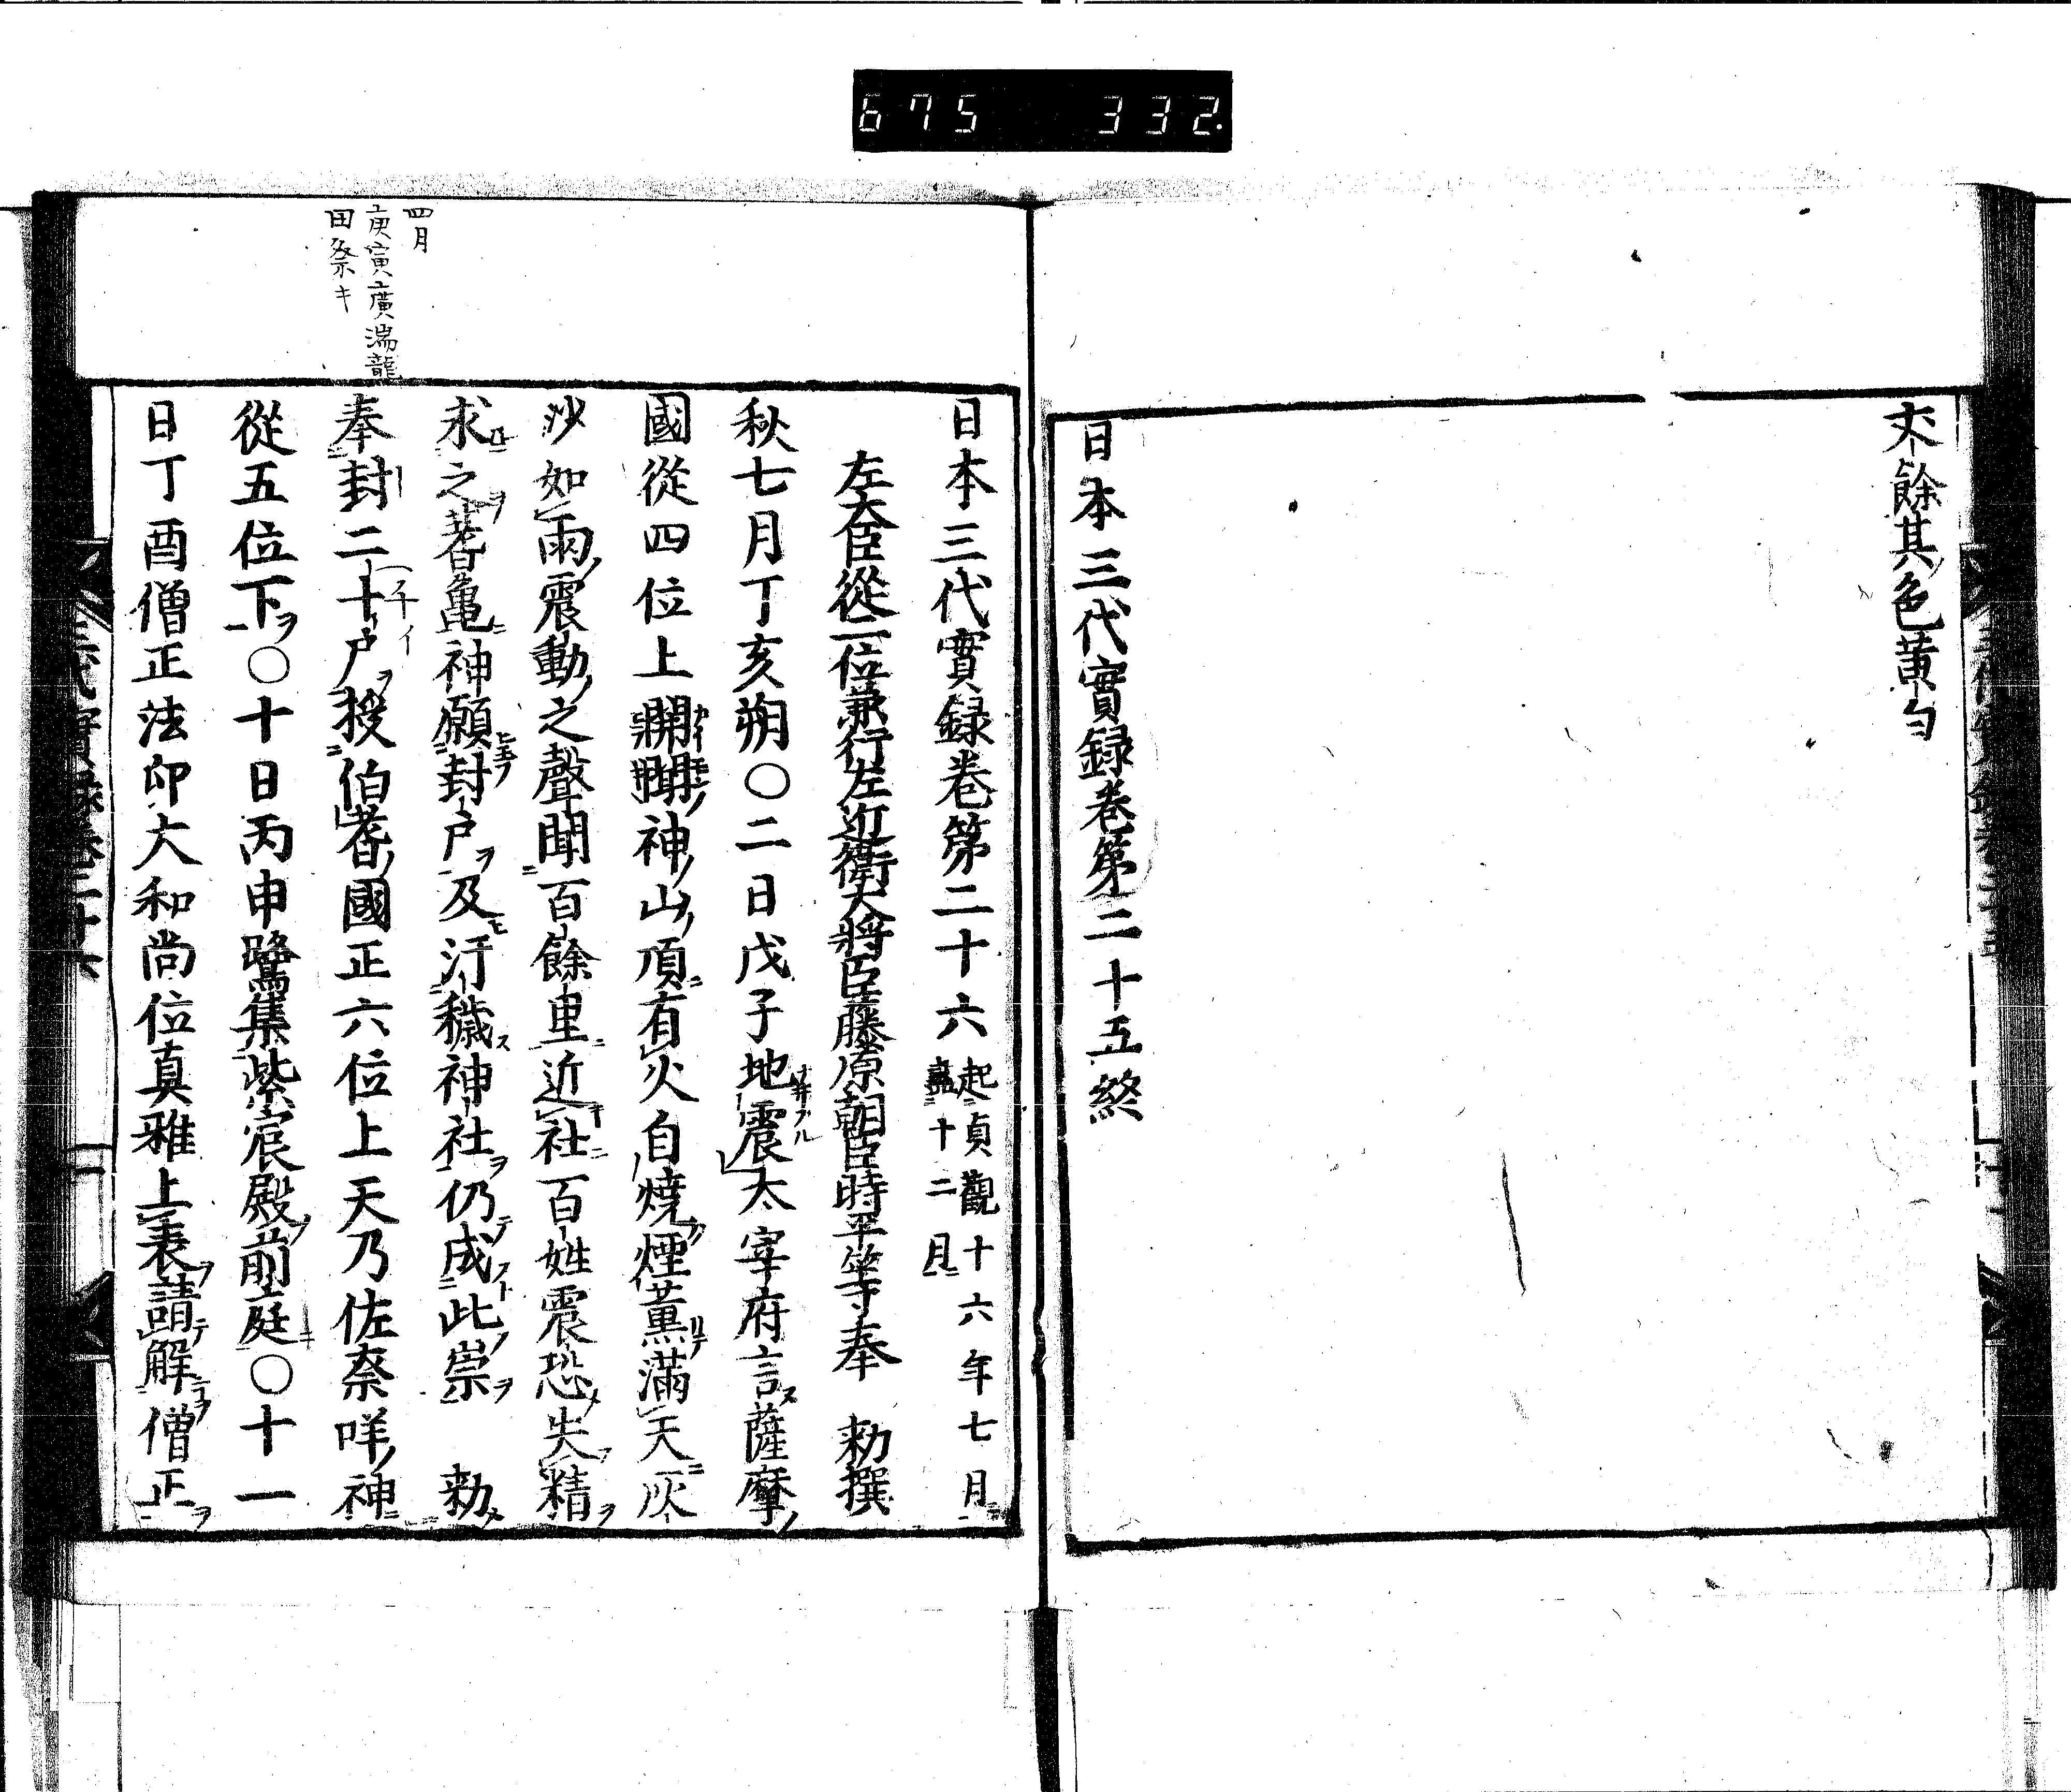 675 332.
丈餘其色黄勻
日本三代實録卷第二十五終
四月
庚寅廣湍龍
田祭キ
日本三代實録卷第二十六 起貞觀十六年七月
盡十二月
左大臣從二位兼行左近衛大將臣藤原朝臣時平等奉 勅撰
秋七月丁亥朔〇二日戊子地震太宰府言薩摩
國從四位上開聞神山頂有火自燒煙薫滿天灰
沙如雨震動之聲聞百餘里近社百姓震恐失精
求之蓍亀神願封戸及汙穢神社仍成此崇 勅
奉封二十戸授伯耆國正六位上天乃佐奈咩神
從五位下〇十日丙申鷺集紫宸殿前庭〇十一
日丁酉僧正法印大和尚位真雅上表請解僧正